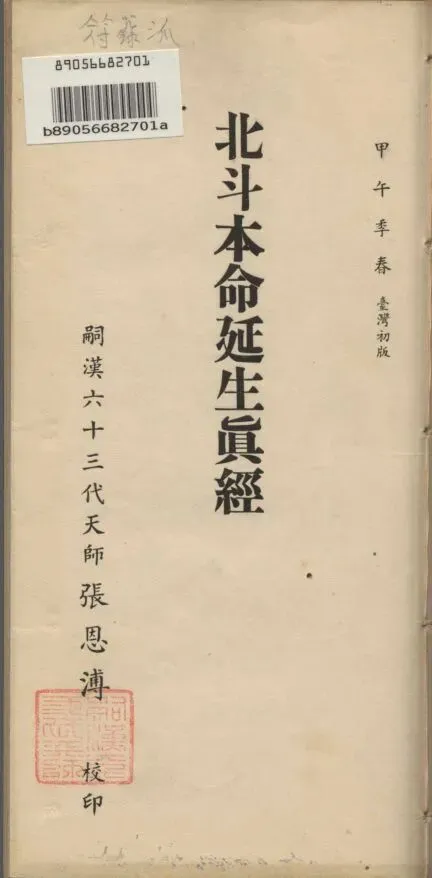 符籙派
89056682701
b89056682701a
甲午季春 臺灣初版
北斗本命延生眞經
嗣漢六十三代天師張恩溥 校印